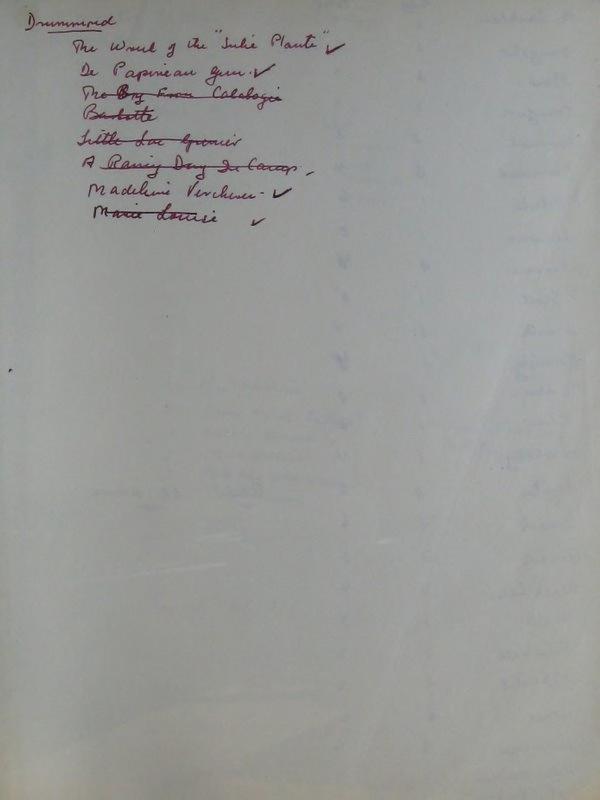 Drummond
The Wreck of the "Julie Plante" ✓
De Papineau Gun. ✓
The Boy From Calabogie
Bateese
Little Lac Grenier
A Rainy Day In Camp
Madeleine Vercheres - ✓
Marie Louise ✓